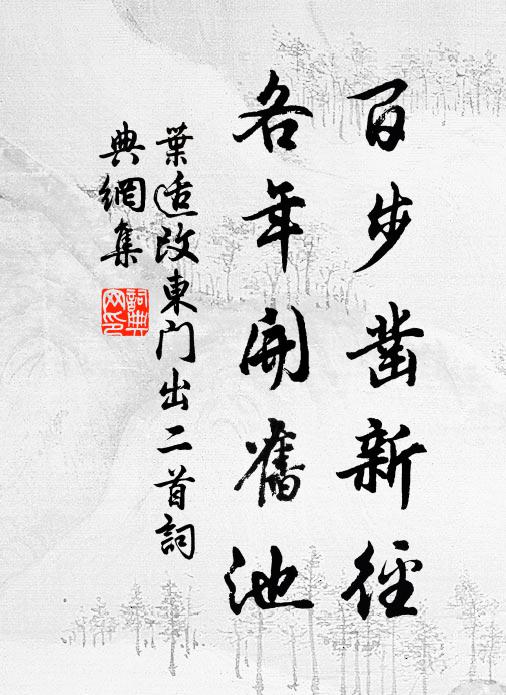 百步凿新径
各年開舊池
葉适改東门出二首詞
典網集
詞典网印